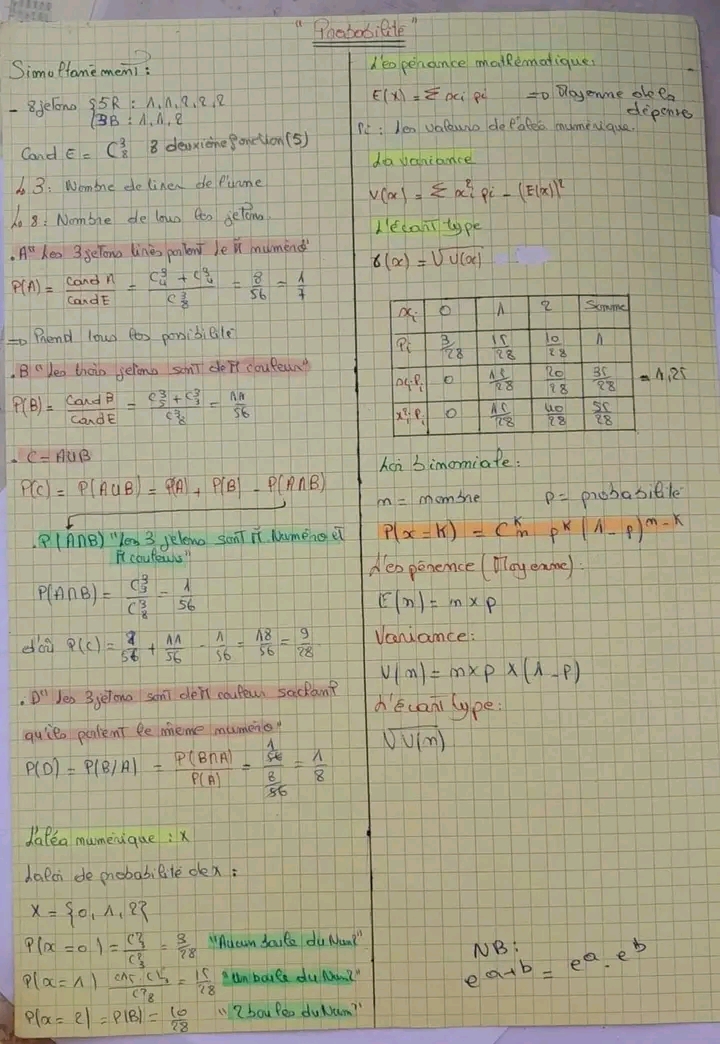 " Probabilité "
Simultanément :
- 8 jetons { 5R : 1, 1, 2, 2, 2
{ 3B : 1, 1, 2
Card E = C³₈ 8 deuxième fonction (5)
↳ 3 : Nombre de tirer de l'urne
↳ 8 : Nombre de tous les jetons
. A " Les 3 jetons tirés portent le m̄ numéro"
P(A) = Card A / Card E = (C³₄ + C³₄) / C³₈ = 8/56 = 1/7
=> Prend tous les possibilité
. B " les trois jetons sont de m̄ couleur"
P(B) = Card B / Card E = (C³₅ + C³₃) / C³₈ = 11/56
. C = A∪B
P(C) = P(A∪B) = P(A) + P(B) - P(A∩B)
. P(A∩B) "Les 3 jetons sont m̄ Numéro et
m̄ couleurs"
P(A∩B) = C³₃ / C³₈ = 1/56
d'où P(C) = 8/56 + 11/56 - 1/56 = 18/56 = 9/28
. D " les 3 jetons sont de m̄ couleur sachant
qu'ils portent le même numéro"
P(D) = P(B/A) = P(B∩A) / P(A) = (1/56) / (8/56) = 1/8
L'aléa numérique : X
La loi de probabilité de x :
X = {0, 1, 2}
P(x = 0) = = 3/28 "Aucun boule du Num 2"
P(x = 1) = 15/28 "Un boule du Num 2"
P(x = 2) = P(B) = 10/28 "2 boules du Num 2"
L'espérance mathématique :
E(x) = Σ xi pi => Moyenne de la
dépense
Pi : les valeurs de l'aléa numérique.
La variance
V(x) = Σ x²i pi - (E(x))²
L'écart type
δ(x) = √V(x)
xi 0 1 2 Somme
Pi 3/28 15/28 10/28 1
xi Pi 0 15/28 20/28 35/28 = 1,25
x²i Pi 0 15/28 40/28 55/28
Loi binomiale :
n = nombre p = probabilité
P(x = K) = Cᴷₙ pᴷ (1 - p)ⁿ⁻ᴷ
L'espérence (Moyenne) :
E(n) = n x p
Variance :
V(n) = n x p x (1 - p)
L'écart type :
√V(n)
NB :
eᵃ⁺ᵇ = eᵃ . eᵇ